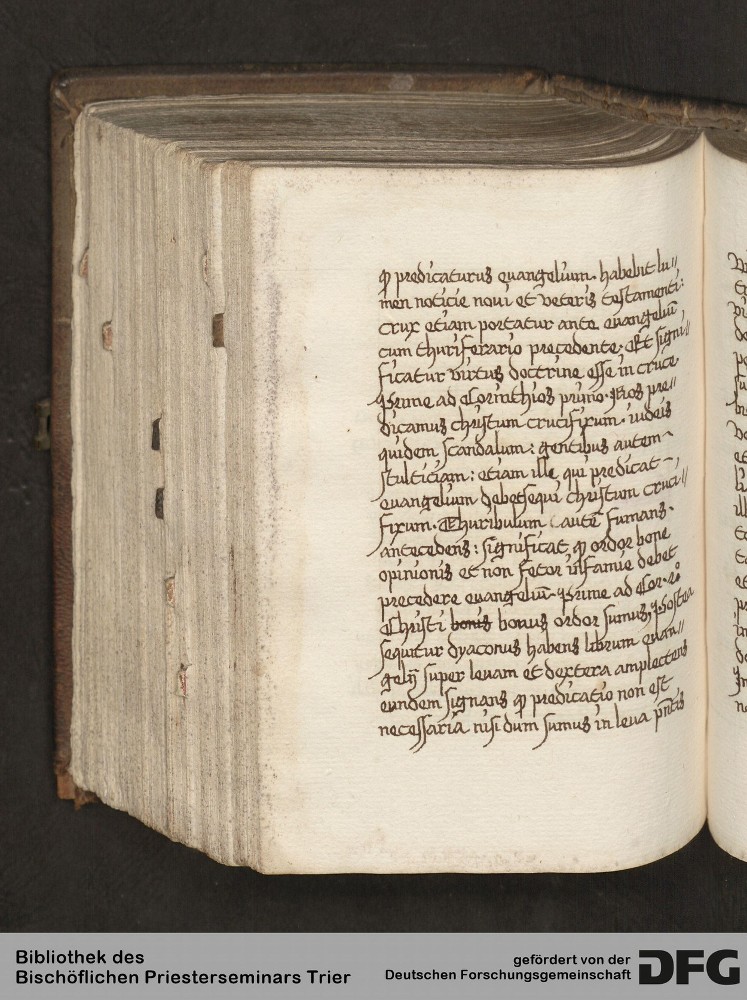 ꝙ predicaturus euangelium. habebit lu//
men noticie noui et veteris testamenti:
crux etiam portatur ante euangeliū
cum thuriferario precedente. Et signi//
ficatur virtus doctrine esse in cruce.
Prime ad Corinthios primo. Nos pre//
dicamus christum crucifixum. iudeis
quidem scandalum: gentibus autem
stulticiam: etiam ille qui predicat
euangelium debet sequi christum cruci//
fixum. Thuribulum autē fumans.
antecedens: significat ꝙ ordor bone
opinionis et non fetor infamie debet
precedere euangeliū. Prime ad Cor. 2o
Christi bonis bonus ordor sumus, Postea
sequitur dyaconus habens librum euan//
gelij super leuam et dextera amplectens
eundem signans ꝙ predicatio non est
necessaria nisi dum sumus in leua pn̄tis
Bibliothek des
Bischöflichen Priesterseminars Trier
gefördert von der
Deutschen Forschungsgemeinschaft
DFG